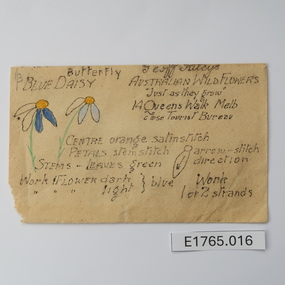 Butterfly
BLUE DAISY
AUSTRALIAN WILDFLOWERS
"Just as they grow"
14 Queens Walk Melb
close Tourist Bureau
CENTRE orange satin stitch
PETALS stem stitch
arrow-stitch
direction
STEMS - LEAVES green
Work 1 FLOWER dark } blue
" " " light
Work
1 or 2 strands
E1765.016